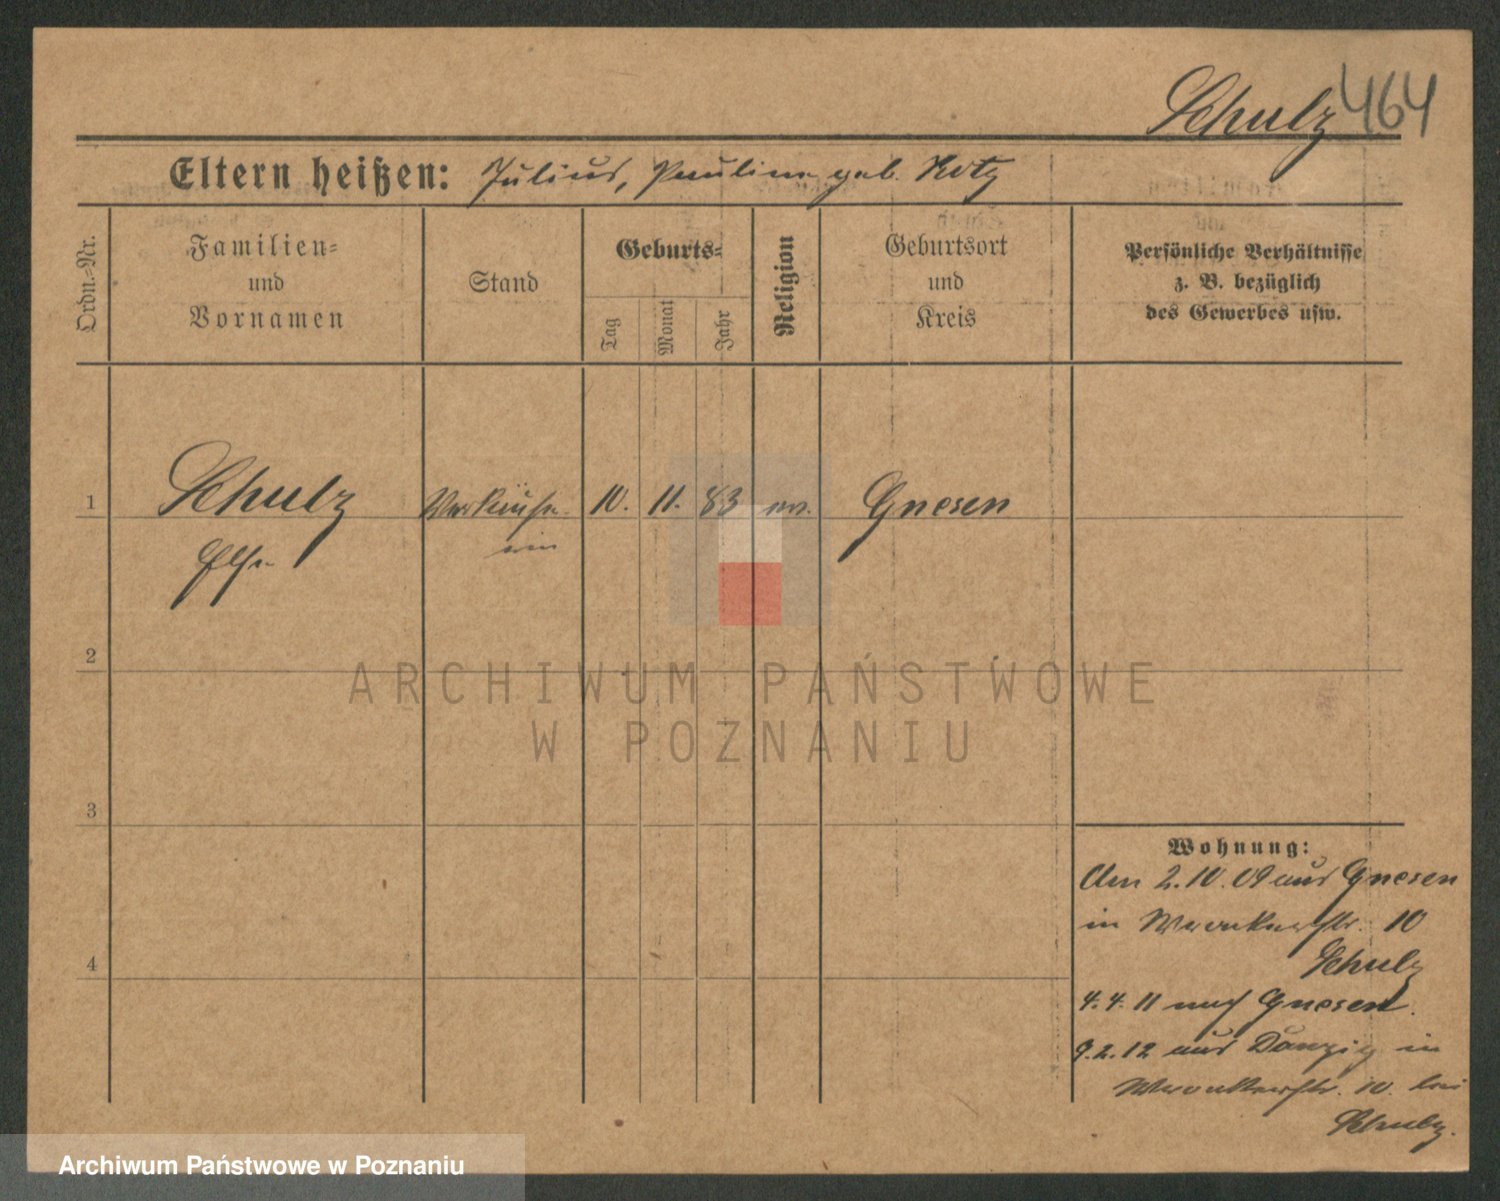 Schulz 464
Eltern heißen: Julius, Pauline geb. Kotz
Ordn.=Nr.
Familien=
und
Vornamen
Stand
Geburts=
Tag
Monat
Jahr
Religion
Geburtsort
und
Kreis
Persönliche Verhältnisse
z. B. bezüglich
des Gewerbes usw.
1 Schulz Verkäufe- 10. 11. 83 ev. Gnesen
Else
rin
2
3
4
Wohnung:
Am 2.10.09 aus Gnesen
in Wronkerstr. 10
Schulz
4.4.11 nach Gnesen.
9.2.12 aus Danzig in
Wronkerstr. 10. bei
Schulz.
ARCHIWUM PAŃSTWOWE
W POZNANIU
Archiwum Państwowe w Poznaniu